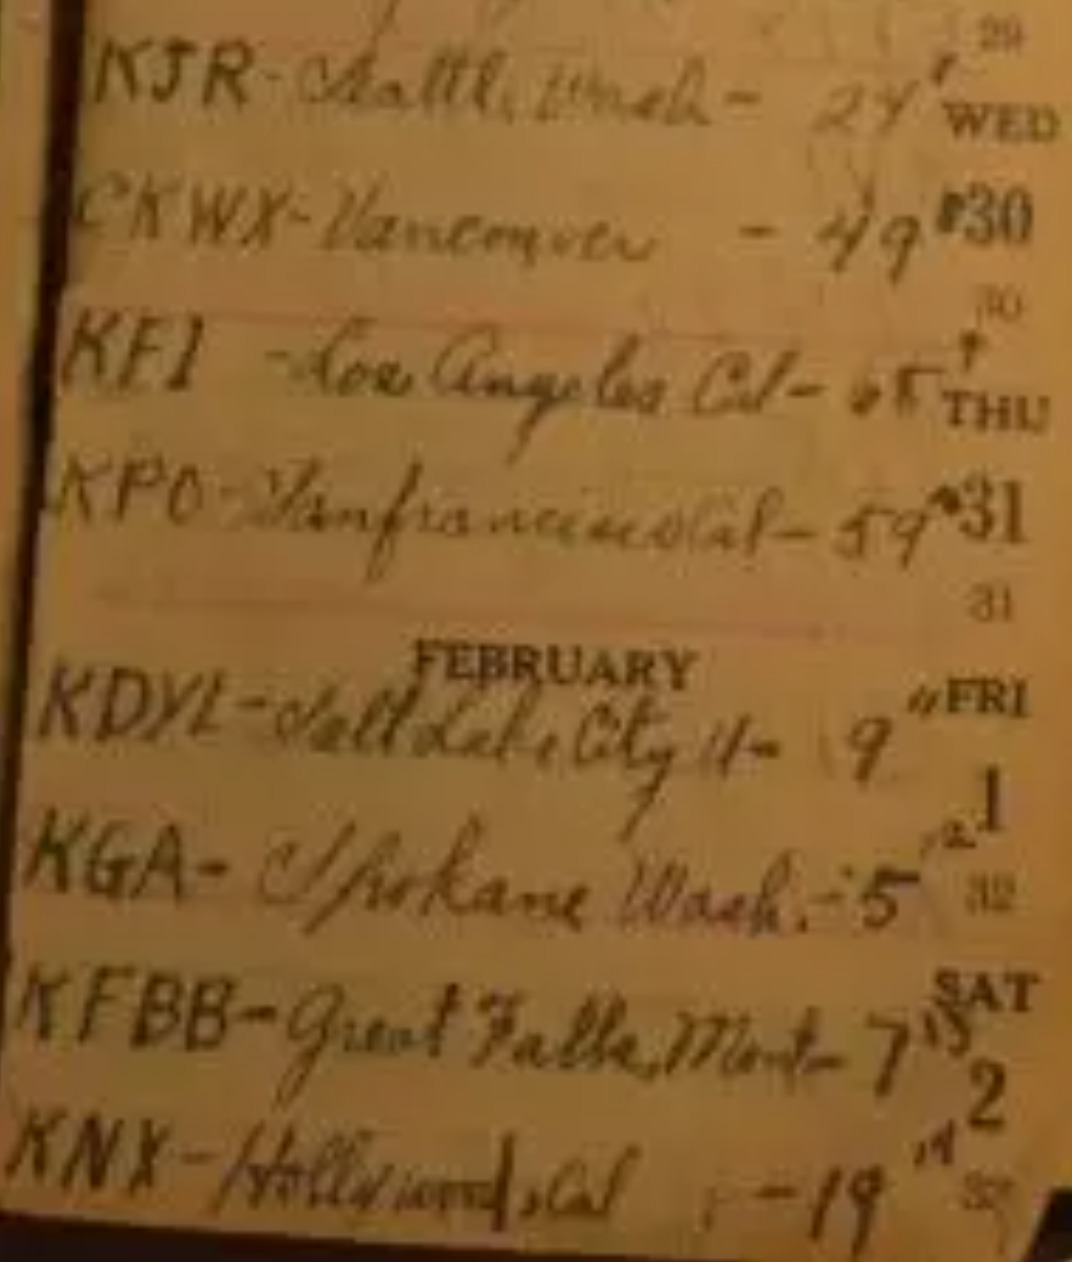 29
KJR - Seattle, Wash - 24
WED
CKWX - Vancouver - 49
30
30
KFI - Los Angeles Cal -
THU
KPO - Sanfrancisco Cal - 59
31
31
FEBRUARY
KDYL - Salt Lake City U - 9
11 FRI
1
12
KGA - Spokane Wash. - 5
32
SAT
KFBB - Great Falls, Mont - 7
13
2
KNX - Hollywood, Cal - 19
14